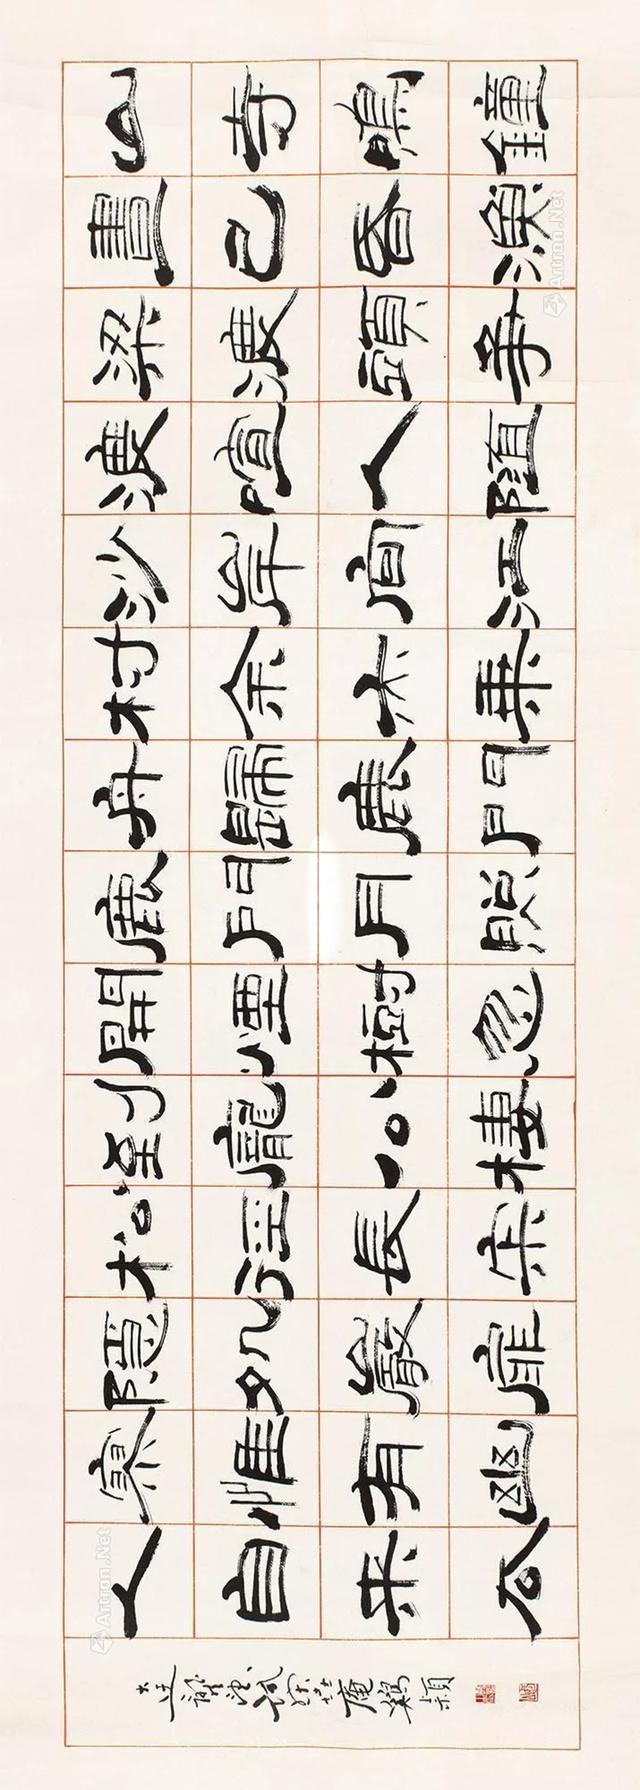 山寺鳴鐘
晝已昏漁
梁渡頭爭
渡喧人隨
沙岸向江
村余亦乘
舟歸鹿門
鹿門月照
開煙樹忽
到龐公棲
松徑長寂
隱處巖扉
寥惟有幽
人自來去
Artron.Net
Artron.Net